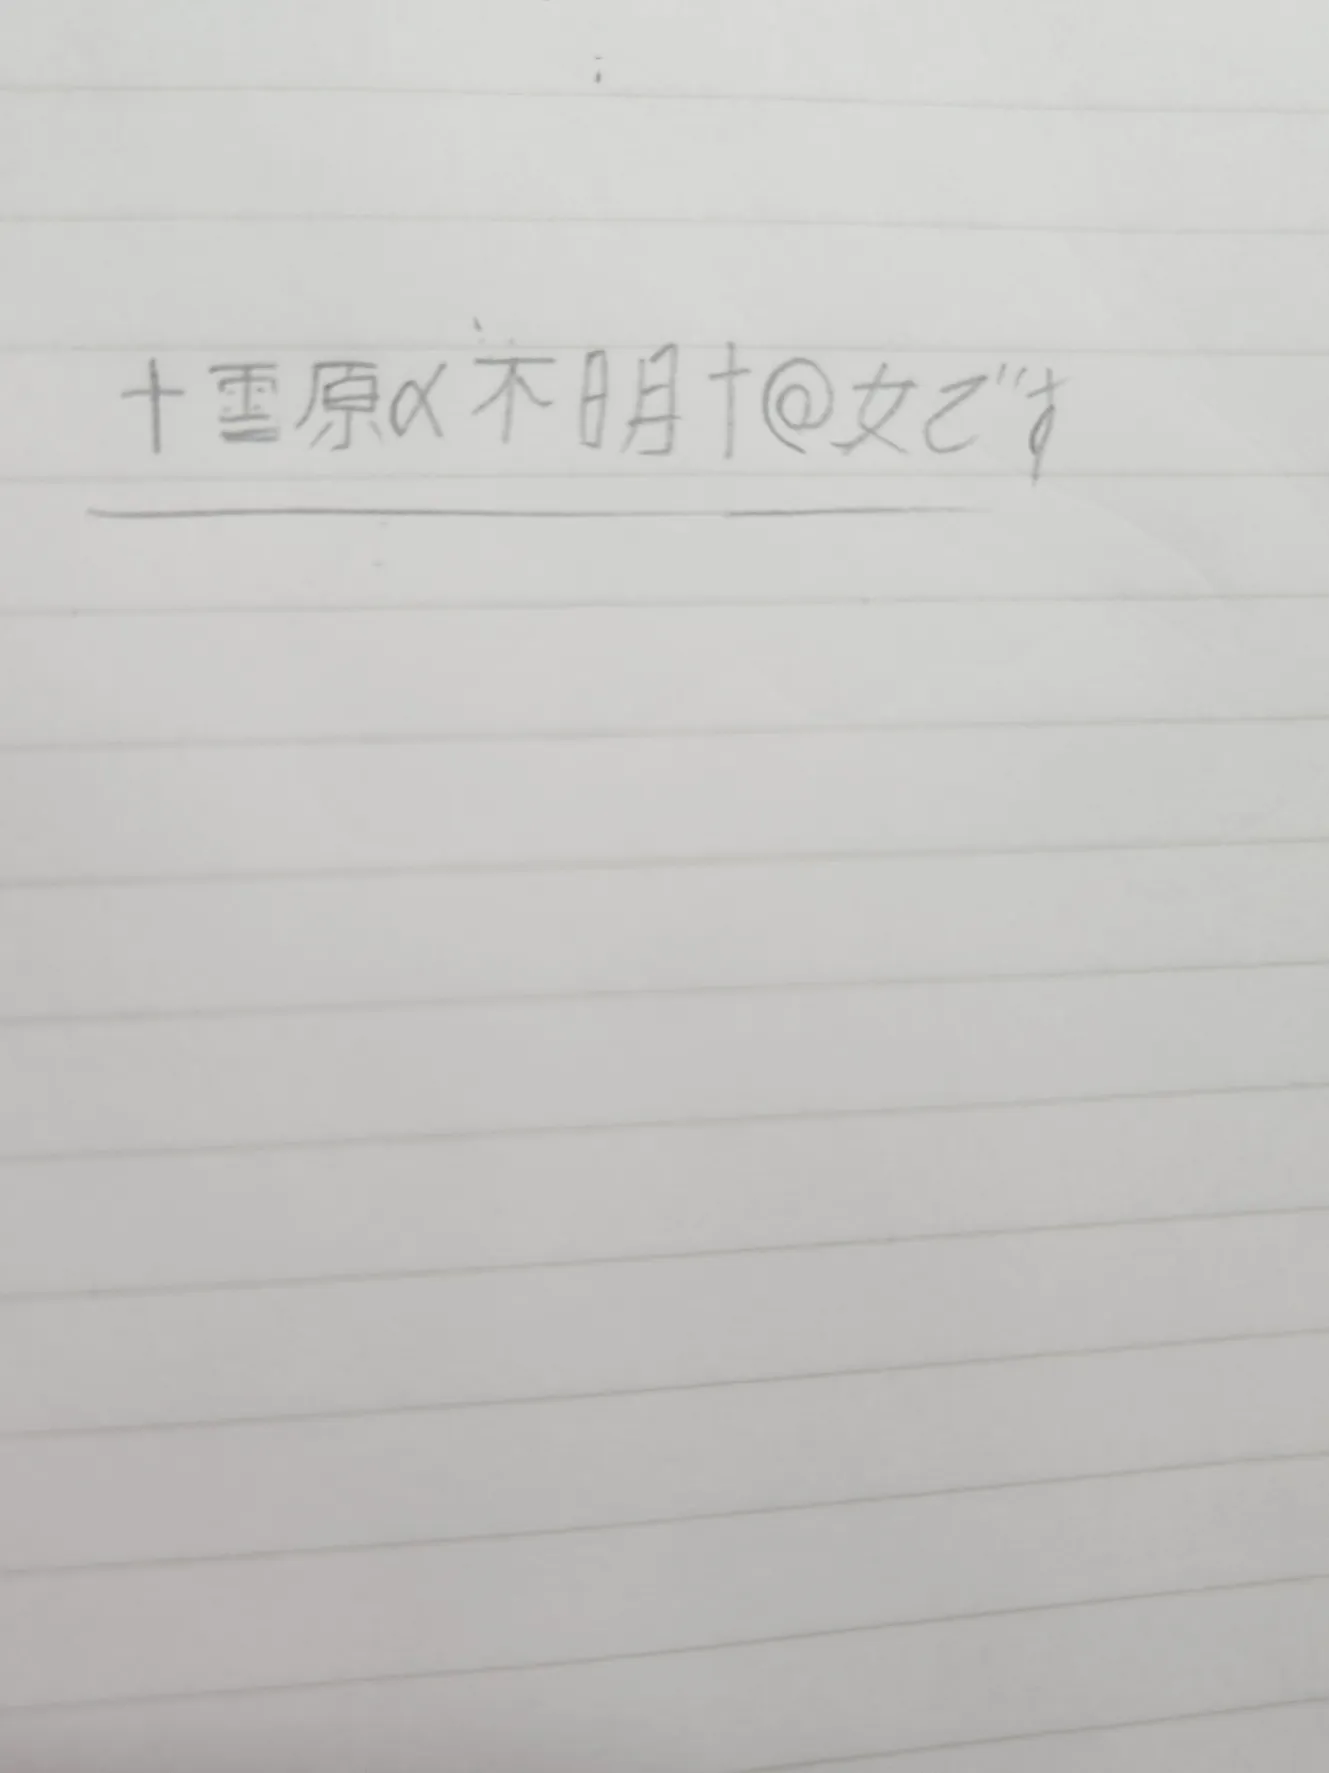 †雪原α不明†@女です